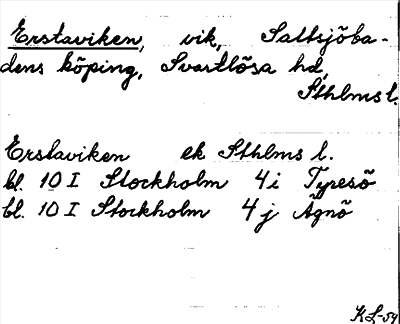 Erstaviken, vik, Saltsjöba-
dens köping, Svartlösa hd,
Sthlms l.
Erstaviken ek Sthlms l.
bl. 10 I Stockholm 4 i Tyresö
bl. 10 I Stockholm 4 j Ägnö
KL-59